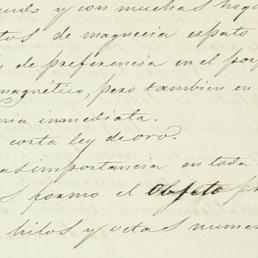 y con muchas hoga
tos de magnecia espato
de preferencia en el por
magnético, pero tambien en
inmediata.
corta ley de oro.
importancia en toda
formo el Objeto pr
hilos y vetas nume